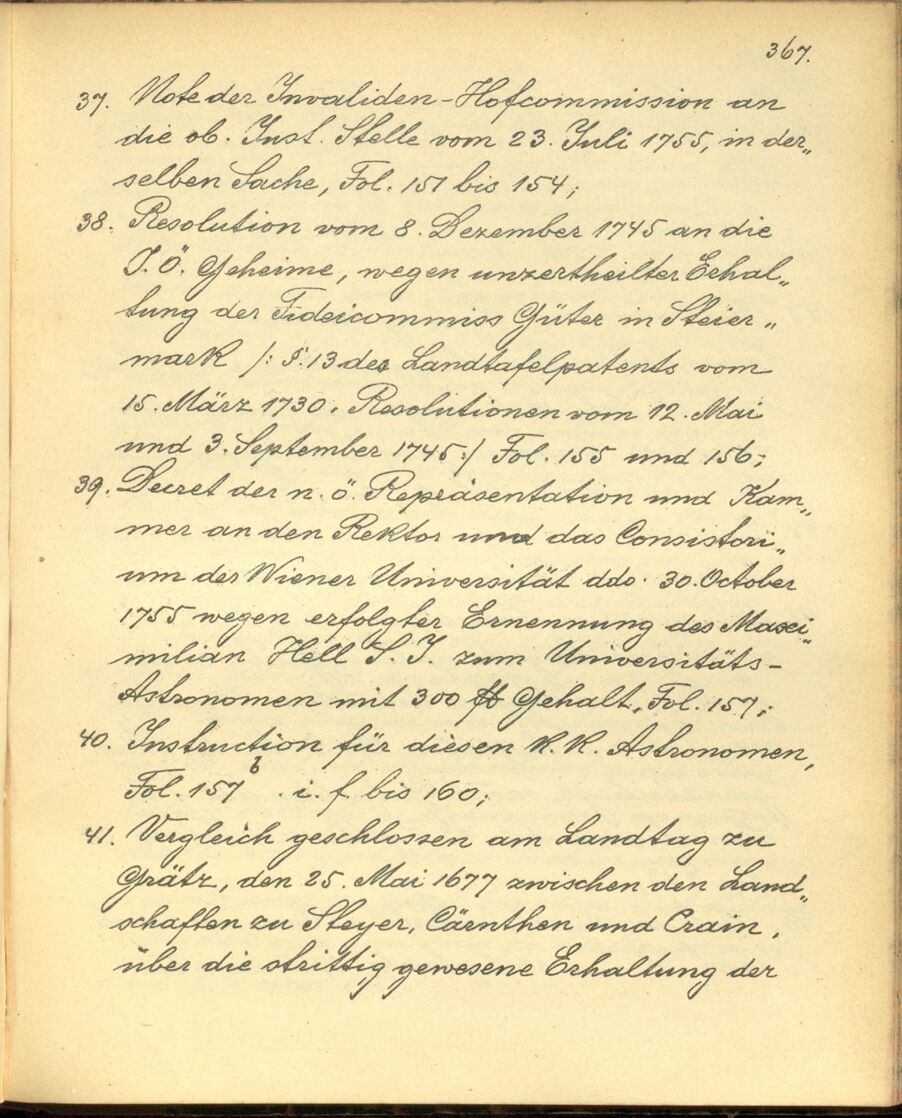 367.
37. Note der Invaliden-Hofcommission an
die ob. Just. Stelle vom 23. Juli 1755, in der„
selben Sache, Fol. 151 bis 154;
38. Resolution vom 8. Dezember 1745 an die
I. Ö. Geheime, wegen unzertheilter Erhal„
tung der Fideicommiss Güter in Steier„
mark /: §. 13 des Landtafelpatents vom
15. März 1730. Resolutionen vom 12. Mai
und 3. September 1745:/ Fol. 155 und 156;
39. Decret der n. ö. Repräsentation und Kam„
mer an den Rektor und das Consistori„
um der Wiener Universität ddo. 30. October
1755 wegen erfolgter Ernennung des Maxi„
milian Hell S. J. zum Universitäts-
Astronomen mit 300 fl Gehalt, Fol. 157;
40. Instruction für diesen k. k. Astronomen,
Fol. 157 b. i. f. bis 160;
41. Vergleich geschlossen am Landtag zu
Grätz, den 25. Mai 1677 zwischen den Land„
schaften zu Steyer, Cärnthen und Crain,
über die strittig gewesene Erhaltung der